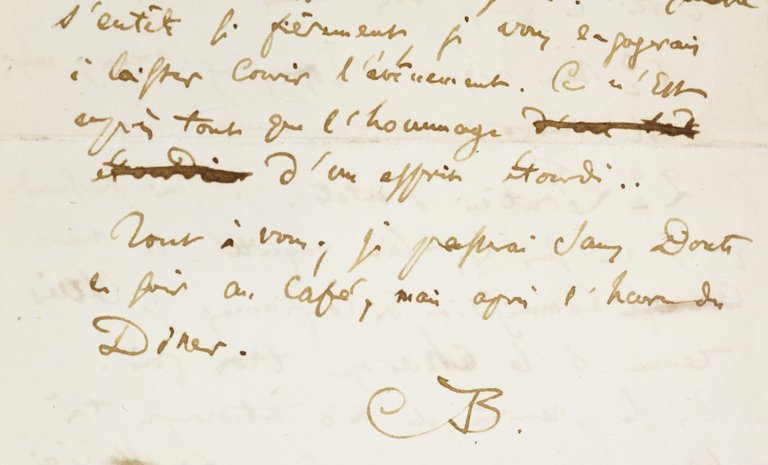 s'entête si fièrement, je vous engagerais
à laisser courir l'événement. Ce n'Est
après tout que l'hommage d'un tel
étourdi d'un esprit étourdi..
Tout à vous, je passerai sans Doute
ce soir au Café, mais après l'heure du
Diner.
CB.